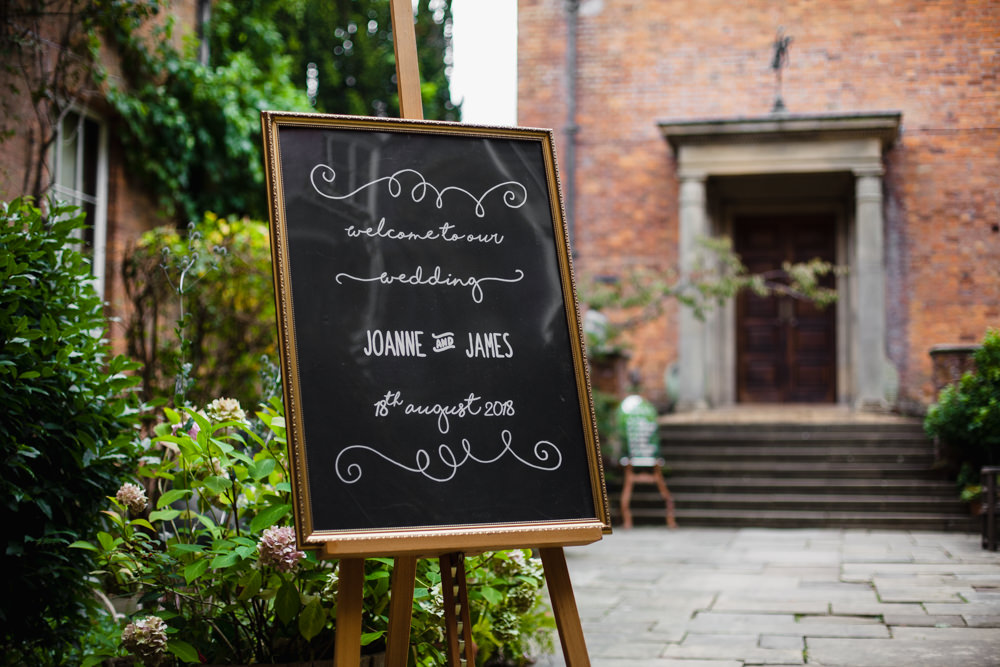 welcome to our
wedding
JOANNE AND JAMES
18th august 2018